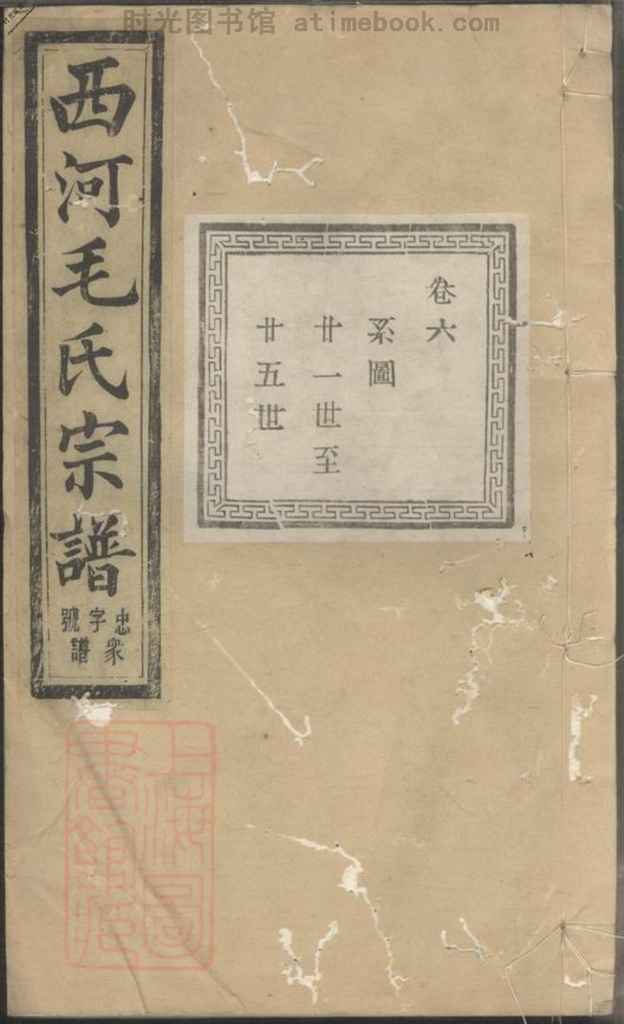 时光图书馆 atimebook.com
西河毛氏宗譜
忠字號
衆譜
卷六
系圖
廿一世至
廿五世
上海圖
書館藏